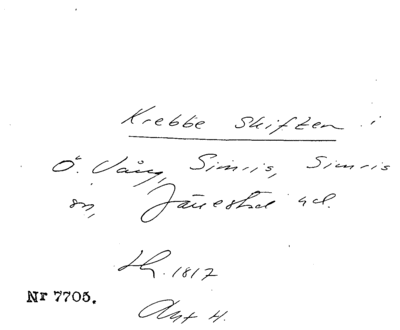 Krebbe Skiften i
Ö. Vång, Simris, Simris
sn, Järrestad hd.
1817
Nr 7705.